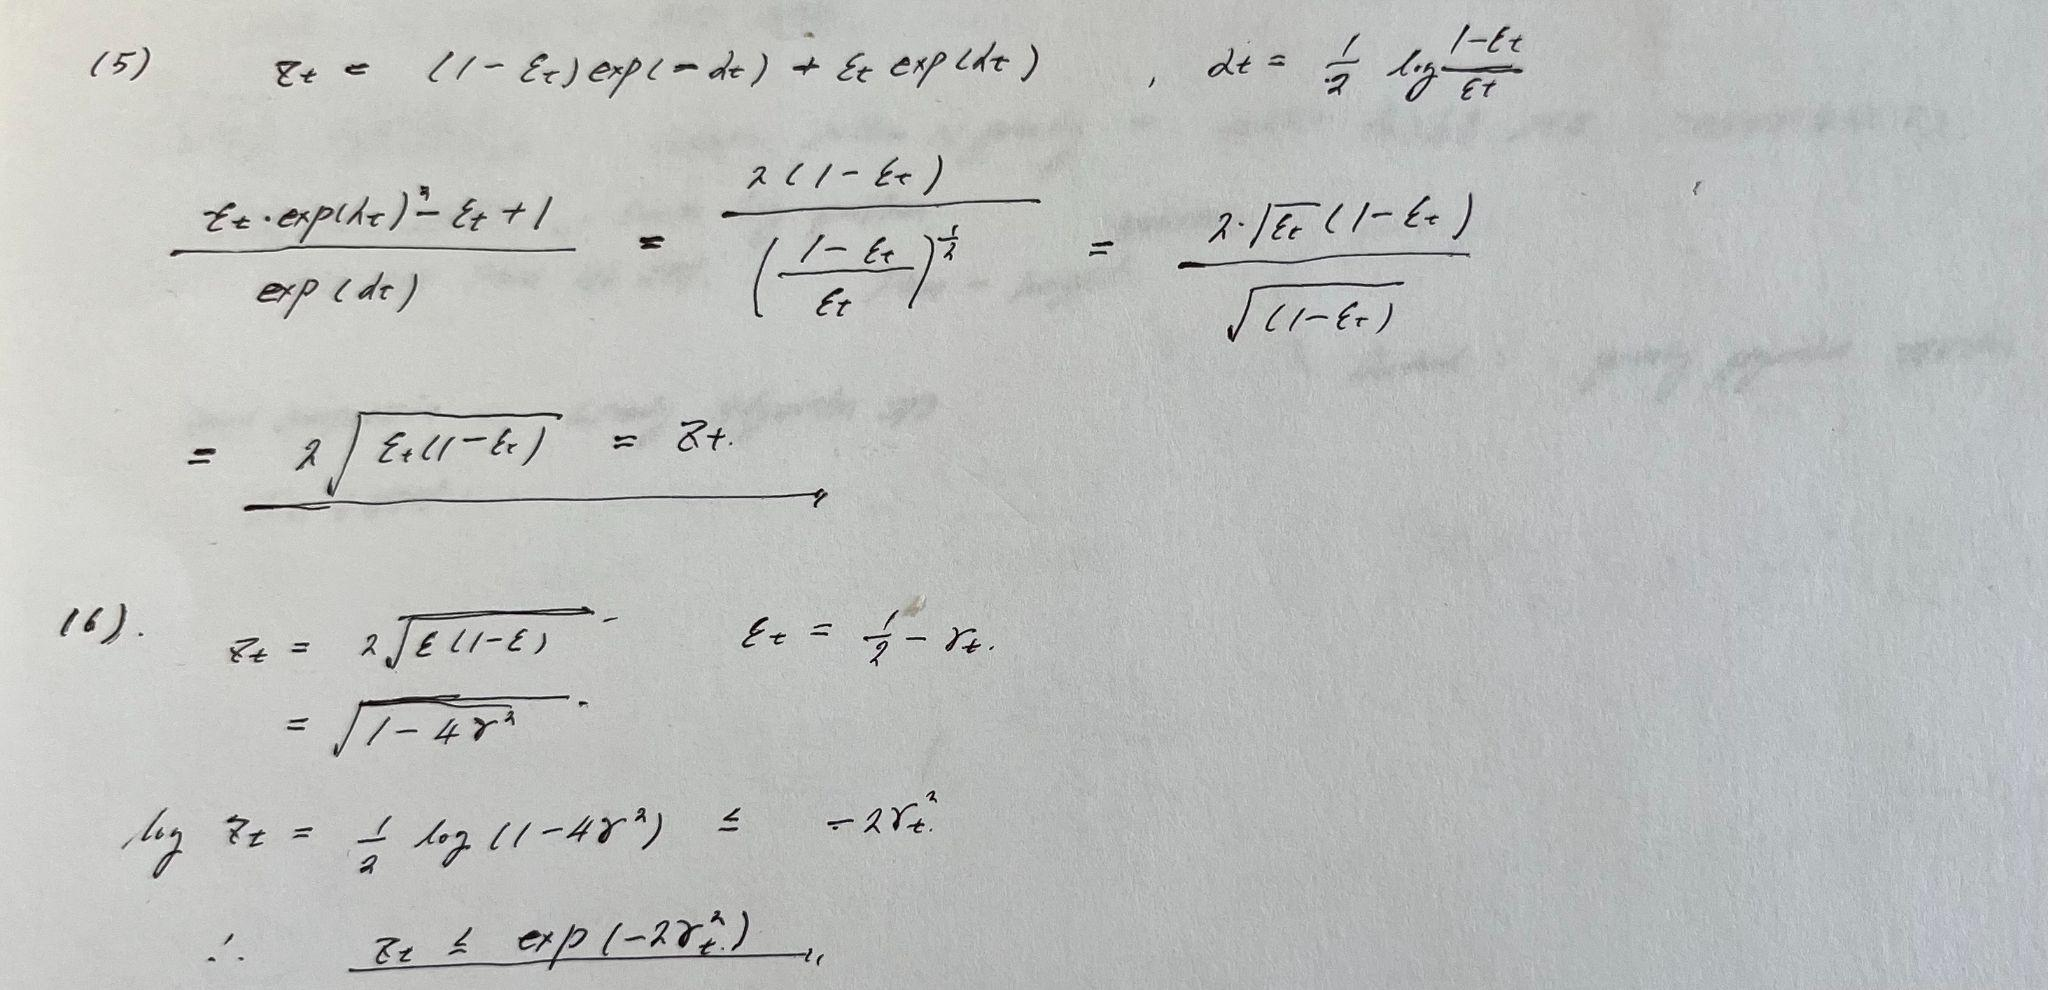 (5) Zt = (1-εt) exp(-αt) + εt exp(αt) , αt = 1/2 log (1-εt)/εt
(εt · exp(αt)² - εt + 1) / exp(αt) = 2(1-εt) / ((1-εt)/εt)^(1/2) = 2·√εt (1-εt) / √(1-εt)
= 2√(εt(1-εt)) = Zt.
(6). Zt = 2√(ε(1-ε)) . εt = 1/2 - γt.
= √(1-4γ²) .
log Zt = 1/2 log (1-4γ²) ≤ -2γt².
∴ Zt ≤ exp(-2γt².)